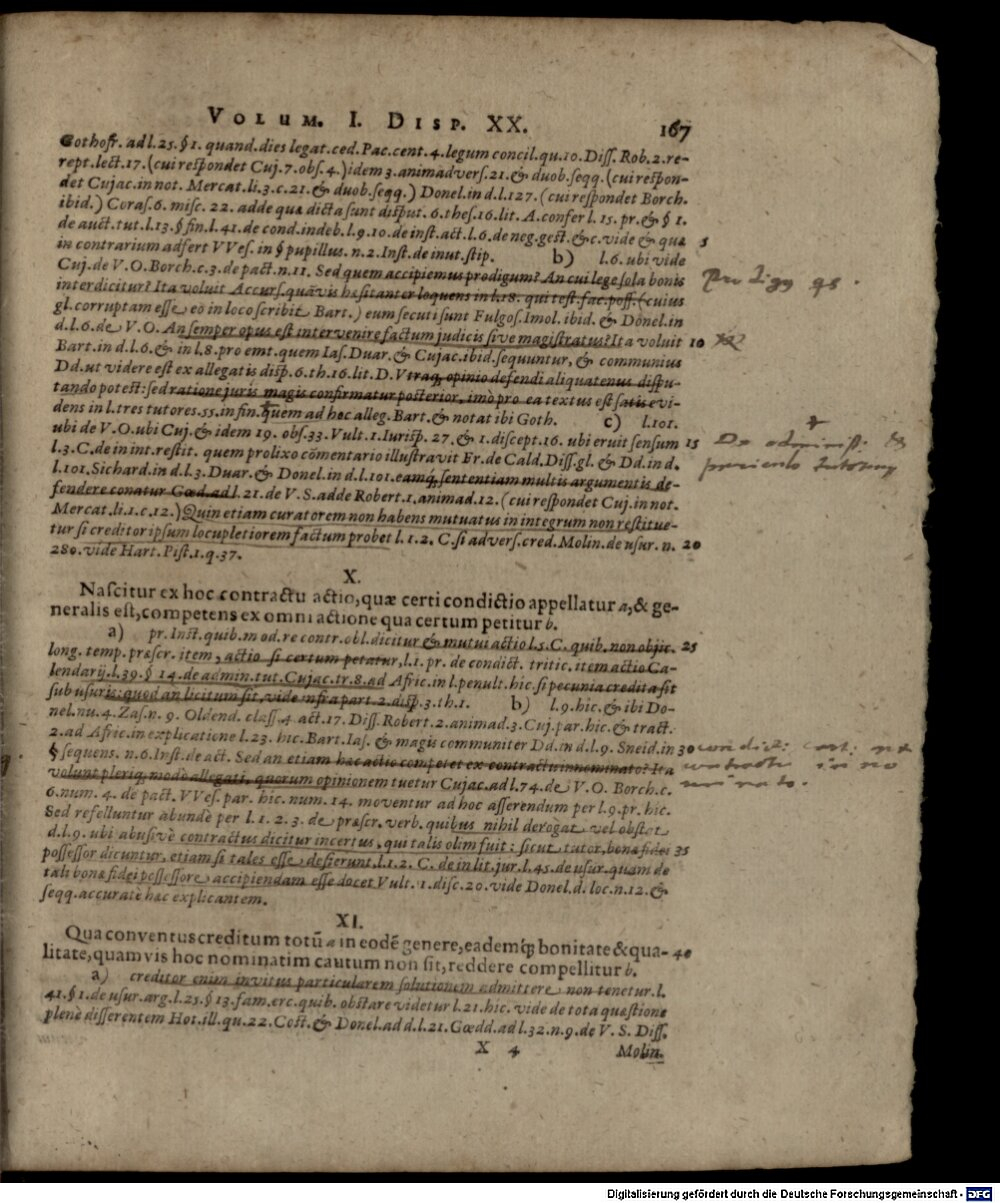 VOLUM. I. DISP. XX. 167
Gothofr. ad l.25.§ 1. quand.dies legat.ced. Pac.cent.4.legum concil.qu.10. Diss. Rob.2.re-
rept.lect.17.(cui respondet Cuj.7.obs.4.)idem 3.animadvers.21.& duob.seqq.(cui respon-
det Cujac.in not. Mercat.li.3.c.21.& duob.seqq.) Donel.in d.l.127.(cui respondet Borch.
ibid.) Coras.6. misc. 22. adde quæ dicta sunt disput. 6.thes.16.lit. A.confer l. 15. pr.& § 1.
de auct.tut.l.13.§ fin.l.41.de cond.indeb.l.9.10.de inst.act.l.6.de neg.gest.&c.vide & quæ 5
in contrarium adfert VVes.in § pupillus.n.2.Inst.de inut.stip. b) l.6. ubi vide
Cuj.de V.O.Borch.c.3.de pact.n.11. Sed quem accipiemus prodigum? An cui lege sola bonis
interdicitur? Ita voluit Accurs.quāvis hæsitanter loquens in l.18. qui test.fac.poss.(cuius
gl.corruptam esse eo in loco scribit Bart.) eum secuti sunt Fulgos.Imol.ibid.& Donel.in
d.l.6.de V.O. An semper opus est intervenire factum judicis sive magistratus? Ita voluit 10
Bart.in d.l.6.& in l.8.pro emt.quem Ias.Duar.& Cujac.ibid.sequuntur, & communius
Dd.ut videre est ex allegatis disp.6.th.16.lit.D.Vtraq; opinio defendi aliquatenus dispu-
tando potest:sed ratione juris magis confirmatur posterior, imò pro ea textus est satis evi-
dens in l.tres tutores.55.in fin.quem ad hoc alleg.Bart.& notat ibi Goth. c) l.101.
ubi de V.O.ubi Cuj.& idem 19. obs.33.Vult.1.Iurisp. 27.& 1.discept.16. ubi eruit sensum 15
l.3.C.de in int.restit. quem prolixo cōmentario illustravit Fr.de Cald.Diss.gl.& Dd.in d.
l.101.Sichard.in d.l.3.Duar.& Donel.in d.l.101.eamq́; sententiam multis argumentis de-
fendere conatur Gœd.ad l.21.de V.S.adde Robert.1.animad.12.(cui respondet Cuj.in not.
Mercat.li.1.c.12.)Quin etiam curatorem non habens mutuatus in integrum non restitue-
tur si creditor ipsum locupletiorem factum probet l.1.2. C.si advers.cred.Molin.de usur. n. 20
280.vide Hart. Pist.1.q.37.
X.
Nascitur ex hoc contractu actio,quæ certi condictio appellatur a,& ge-
neralis est,competens ex omni actione qua certum petitur b.
a) pr.Inst.quib.mod.re contr.obl.dicitur & mutui actio l.5.C. quib.non objic. 25
long. temp.præscr. item, actio si certum petatur,l.1.pr. de condict. tritic.item actio Ca-
lendarij.l.39.§ 14.de admin.tut.Cujac.tr.8.ad Afric.in l.penult.hic.si pecunia credita sit
sub usuris:quod an licitum sit,vide infra part.2.disp.3.th.1. b) l.9.hic.& ibi Do-
nel.nu.4.Zas.n. 9. Oldend. class.4 act.17. Diss. Robert.2.animad.3.Cuj.par.hic.& tract.
2.ad Afric.in explicatione l.23. hic.Bart.Ias.& magis communiter Dd.in d.l.9. Sneid.in 30
§ sequens. n.6.Inst.de act. Sed an etiam hac actio competet ex contractu innominato? Ita
volunt pleriq; modò allegati, quorum opinionem tuetur Cujac.ad l.74.de V.O. Borch.c.
6.num. 4. de pact. VVes.par. hic.num.14. moventur ad hoc asserendum per l.9.pr.hic.
Sed refelluntur abundè per l. 1. 2. 3. de præscr. verb. quibus nihil derogat vel obstat
d.l.9. ubi abusivè contractus dicitur incertus, qui talis olim fuit: sicut tutor, bonæ fidei 35
possessor dicuntur, etiamsi tales esse desierunt.l.1.2. C. de in lit.jur.l.45.de usur.quam de
tali bonæ fidei possessore accipiendam esse docet Vult. 1.disc.20.vide Donel.d.loc.n.12.&
seqq.accuratè hæc explicantem.
XI.
Qua conventus creditum totū a in eodē genere,eademq́; bonitate & qua- 40
litate,quamvis hoc nominatim cautum non sit,reddere compellitur b.
a) creditor enim invitus particularem solutionem admittere non tenetur.l.
41.§ 1.de usur.arg.l.25.§ 13.fam.erc.quib.obstare videtur l.21.hic. vide de tota quæstione
plenè differentem Hot.ill.qu.22.Cost.& Donel.ad d.l.21.Gœdd.ad l.32.n.9.de V. S. Diss.
X 4 Molin.
De administ. &
periculo tutorum
condict: cert:
contractu in no
minato.
Digitalisierung gefördert durch die Deutsche Forschungsgemeinschaft - DFG